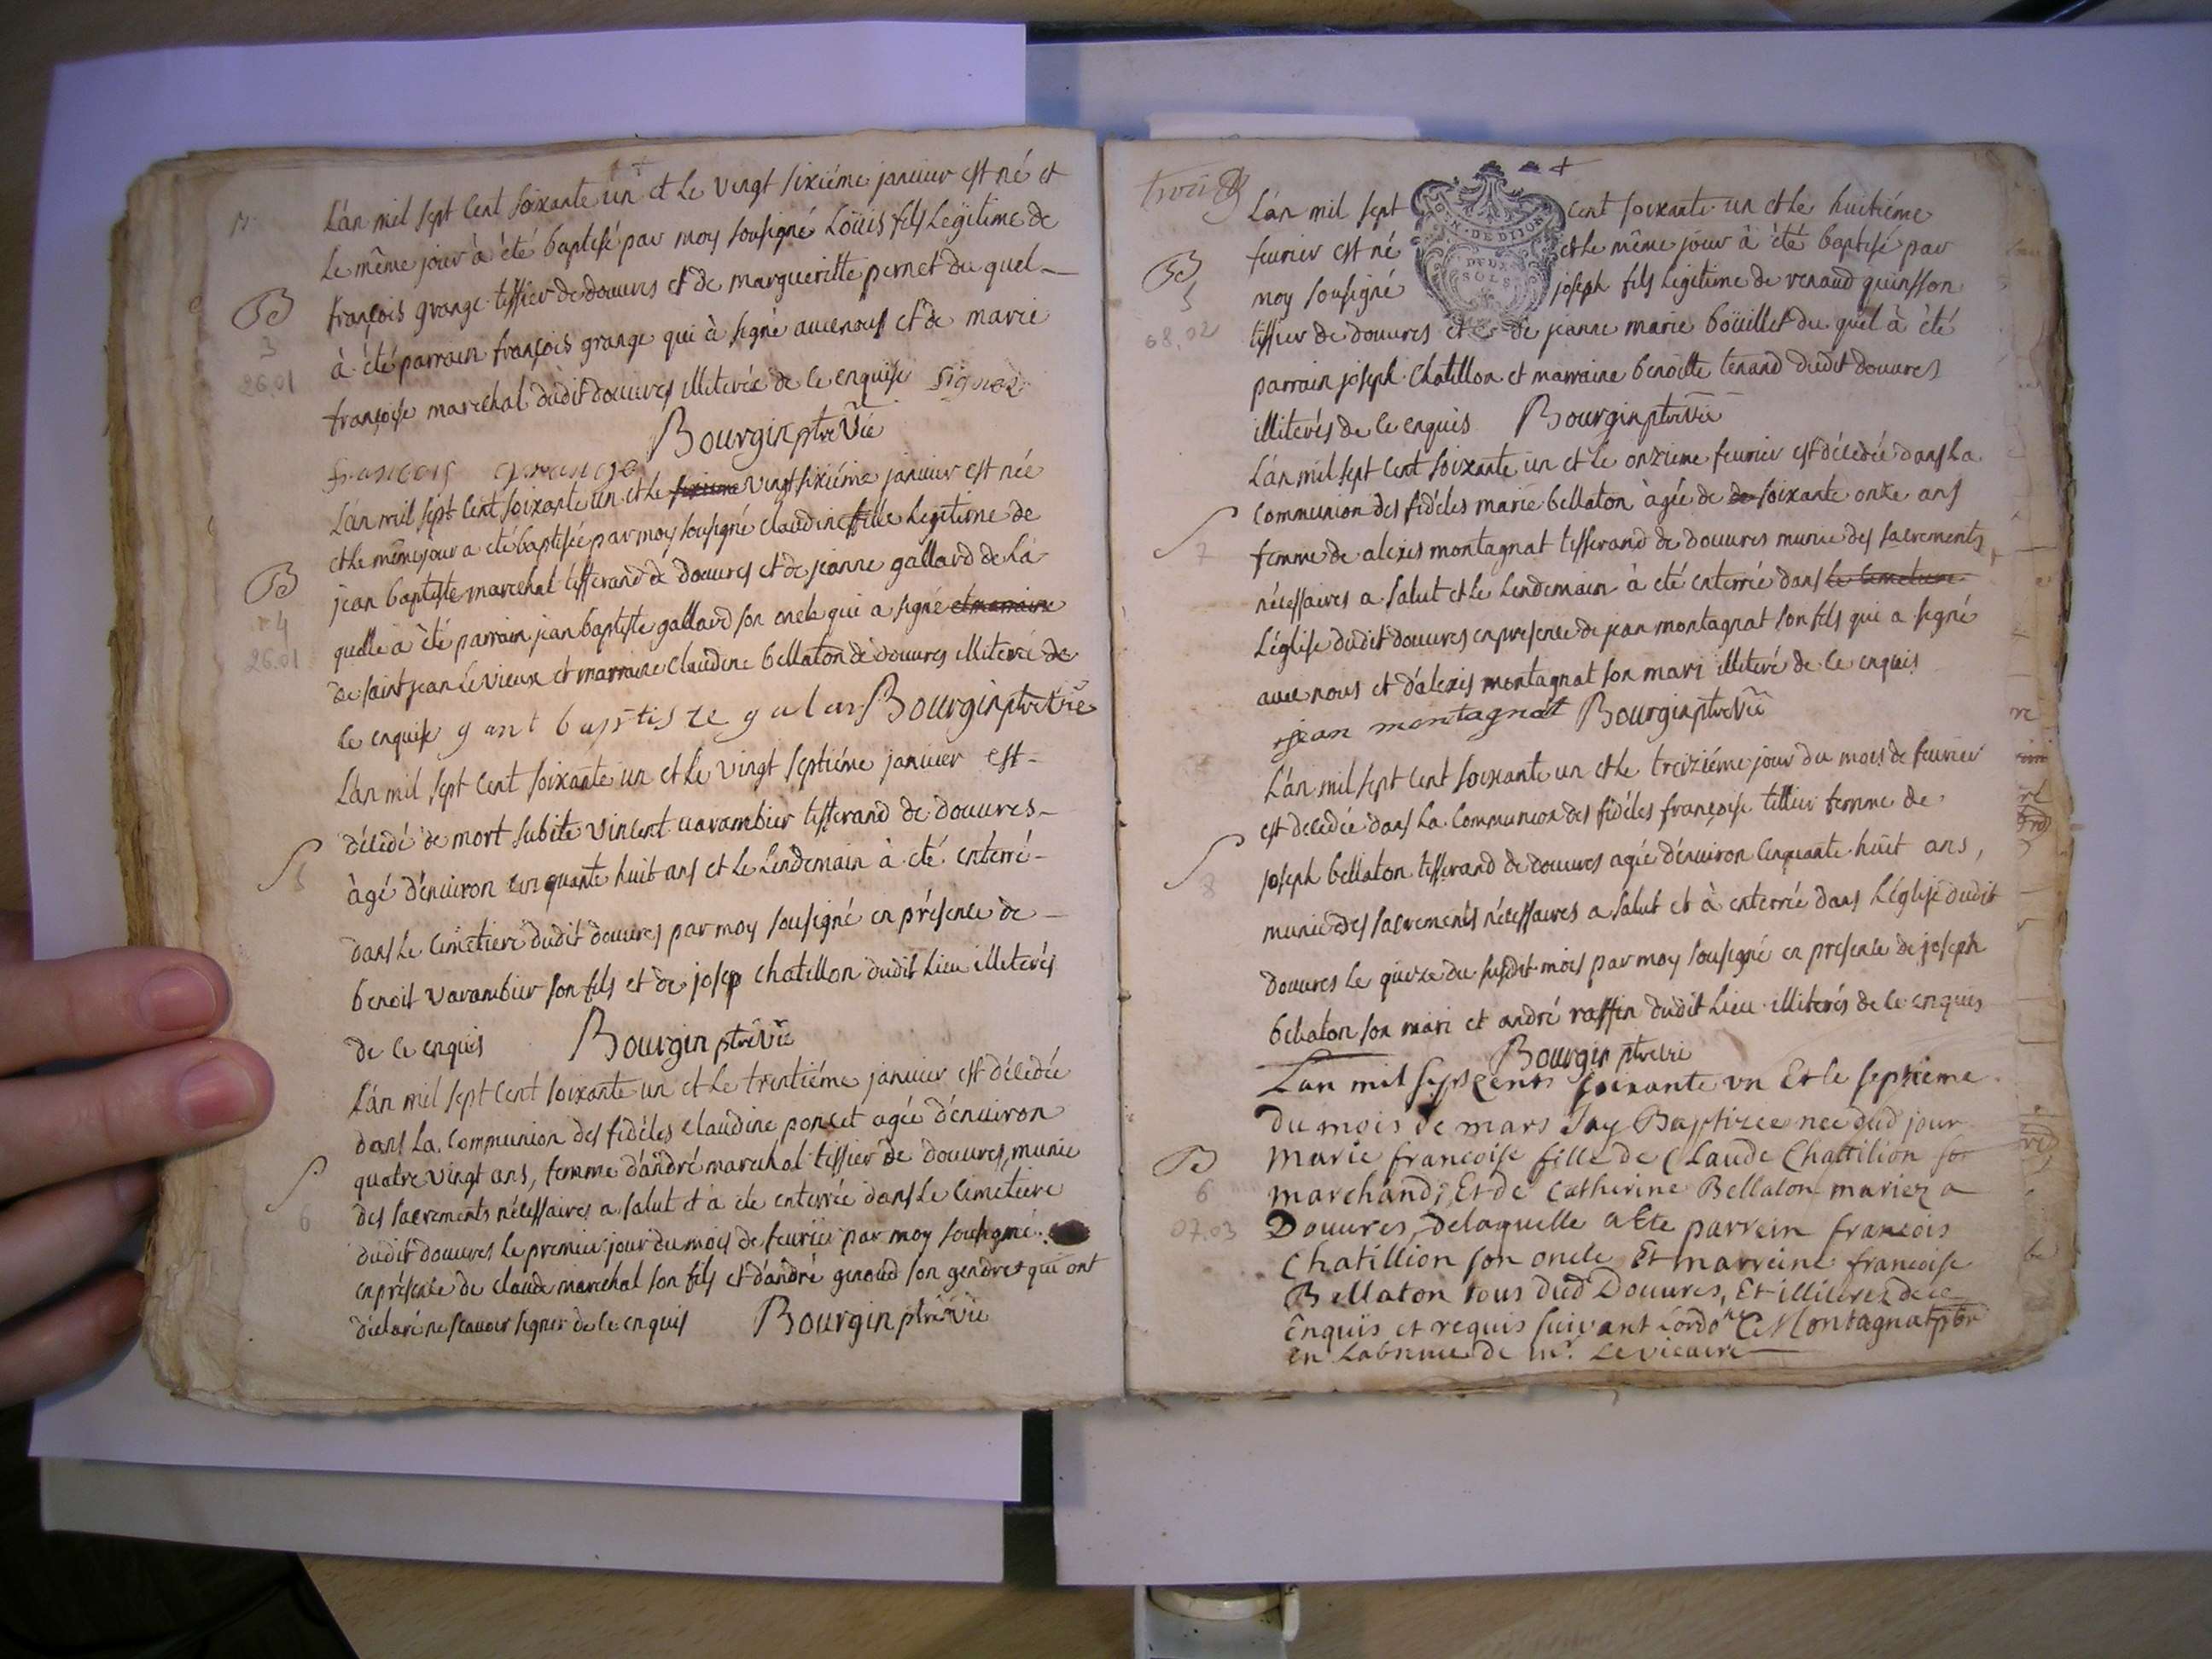 L'an mil sept cent soixante un et le vingt sixiéme januier est né et
le même jour à été baptisé par moy sousigné Loüis fils Legitime de
B
françois grange tissier de douures et de margueritte pernet du quel
3
26.01
à été parrain françois grange qui à signé auec nous et de marie
françoise marechal dudit douures illiterée de ce enquise
Bourgin ptre vic
francois grange
L'an mil sept cent soixante un et le sixieme vingt sixiéme januier est née
et le même jour a été baptisée par moy sousigné claudine fille legitime de
B
jean baptiste marechal tisserand de douures et de jeanne gallard de la
4
26.01
quelle à été parrain jean baptiste gallard son oncle qui a signé et marraine
de saint jean le vieux et marraine claudine bellaton de douures illiterée de
ce enquise Bourgin ptre vic
L'an mil sept cent soixante un et le vingt septiéme januier est
décédé de mort subite vincent uarambier tisserand de douures
S
5
àgé d'enuiron cinquante huit ans et le lendemain à eté enterré
dans le cimetiere dudit douures par moy sousigné en présence de
benoit varambier son fils et de josep chatillon dudit lieu illiterés
de ce enquis Bourgin ptre vic
L'an mil sept cent soixante un et le trentiéme januier est décedée
dans la communion des fidéles claudine poncet agée d'enuiron
S
quatre vingt ans, femme d'andré marechal tissier de douures, munie
6
des sacrements nécessaires a salut et à eté enterrée dans le cimetiere
dudit douures le premier jour du mois de feurier par moy sousigné
en présence de claude marechal son fils et d'andré genoud son gendre qui ont
déclaré ne scauoir signer de ce enquis Bourgin ptre vic
L'an mil sept cent soixante un et le huitiéme
GN. DE DIJON
feurier est né et le même jour à été baptisé par
DEUX
SOLS
B
5
08.02
moy sousigné joseph fils legitime de renaud quinsson
tissier de douures et de jeanne marie boüillet du quel à été
parrain joseph chatillon et marraine benoitte tenand dudit douures
illiterés de ce enquis Bourgin ptre vic
L'an mil sept cent soixante un et le onzieme feurier est décedée dans la
communion des fidéles marie bellaton àgée de de soixante onze ans
S
7
femme de alexis montagnat tisserand de douures munie des sacrements
nécessaires a salut et le lendemain à eté enterrée dans le cimetiere
l'église dudit douures en presence de jean montagnat son fils qui a signé
auec nous et d'alexis montagnat son mari illiteré de ce enquis
jean montagnat Bourgin ptre vic
L'an mil sept cent soixante un et le treiziéme jour du mois de feurier
est decedée dans la communion des fidéles françoise tillier femme de
S
8
joseph bellaton tisserand de douures agée d'enuiron cinquante huit ans,
munie des sacrements nécessaires a salut et à enterrée dans l'église dudit
douures le quinze du susdit mois par moy sousigné en presence de joseph
bellaton son mari et andré raffin dudit lieu illiterés de ce enquis
Bourgin ptre vic
Lan mil sept cents soixante vn Et le septieme
du mois de mars Jay Baptizee nee dud jour
B
6
07.03
Marie francoise fille de Claude Chattilion
marchand, Et de Catherine Bellaton mariez a
Douures, delaquelle a Ete parrein francois
Chatillion son oncle Et marreine francoise
Bellaton tous dud Douures, Et illiterez de ce
Enquis et requis suivant Lordoce C Montagnat ptre
en Labsence de mr. Le vicaire